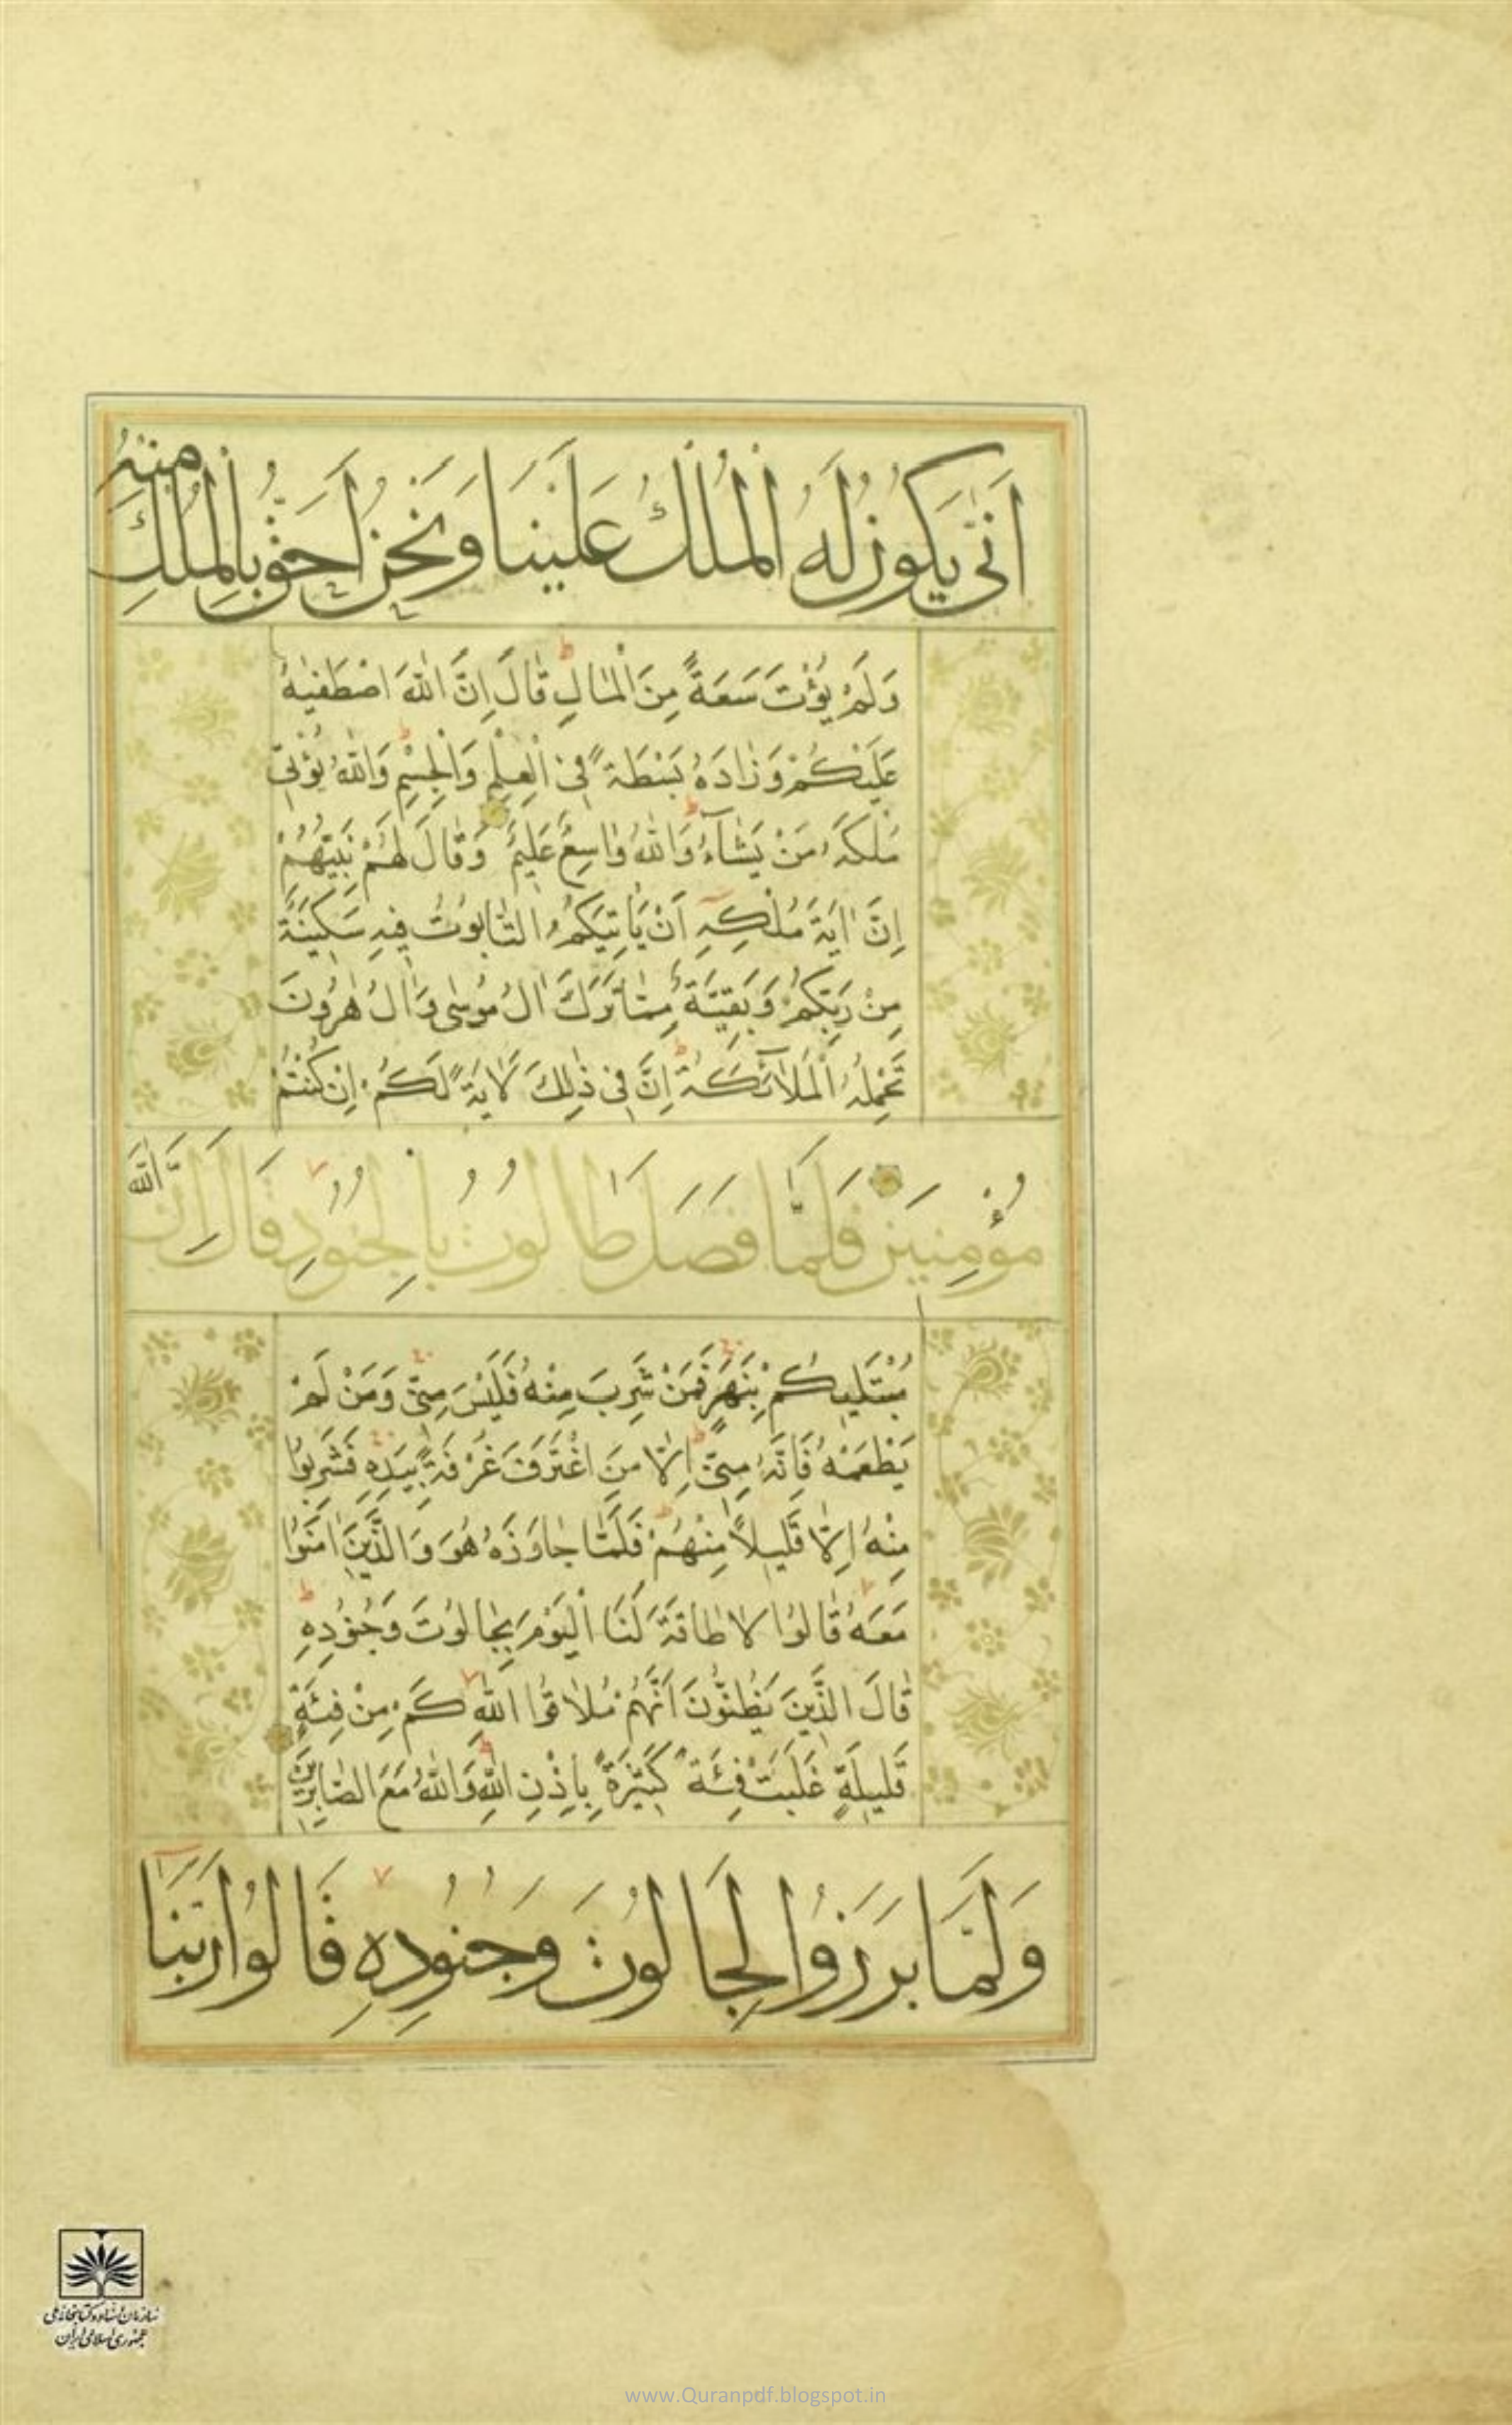 اَنّٰى يَكُونُ لَهُ الْمُلْكُ عَلَيْنَا وَنَحْنُ اَحَقُّ بِالْمُلْكِ مِنْهُ
وَلَمْ يُؤْتَ سَعَةً مِنَ الْمَالِ قَالَ اِنَّ اللّٰهَ اصْطَفٰيهُ
عَلَيْكُمْ وَزَادَهُ بَسْطَةً فِى الْعِلْمِ وَالْجِسْمِ وَاللّٰهُ يُؤْتِى
مُلْكَهُ مَنْ يَشَآءُ وَاللّٰهُ وَاسِعٌ عَلِيمٌ وَقَالَ لَهُمْ نَبِيُّهُمْ
اِنَّ اٰيَةَ مُلْكِهٖٓ اَنْ يَاْتِيَكُمُ التَّابُوتُ فِيهِ سَكِينَةٌ
مِنْ رَبِّكُمْ وَبَقِيَّةٌ مِمَّا تَرَكَ اٰلُ مُوسٰى وَاٰلُ هٰرُونَ
تَحْمِلُهُ الْمَلٰٓائِكَةُ اِنَّ فِى ذٰلِكَ لَاٰيَةً لَكُمْ اِنْ كُنْتُمْ
مُؤْمِنِينَ فَلَمَّا فَصَلَ طَالُوتُ بِالْجُنُودِ قَالَ اِنَّ اللّٰهَ
مُبْتَلِيكُمْ بِنَهَرٍ فَمَنْ شَرِبَ مِنْهُ فَلَيْسَ مِنِّى وَمَنْ لَمْ
يَطْعَمْهُ فَاِنَّهُ مِنِّى اِلَّا مَنِ اغْتَرَفَ غُرْفَةً بِيَدِهٖ فَشَرِبُوا
مِنْهُ اِلَّا قَلِيلًا مِنْهُمْ فَلَمَّا جَاوَزَهُ هُوَ وَالَّذِينَ اٰمَنُوا
مَعَهُ قَالُوا لَا طَاقَةَ لَنَا الْيَوْمَ بِجَالُوتَ وَجُنُودِهٖ
قَالَ الَّذِينَ يَظُنُّونَ اَنَّهُمْ مُلَاقُوا اللّٰهِ كَمْ مِنْ فِئَةٍ
قَلِيلَةٍ غَلَبَتْ فِئَةً كَثِيرَةً بِاِذْنِ اللّٰهِ وَاللّٰهُ مَعَ الصَّابِرِينَ
وَلَمَّا بَرَزُوا لِجَالُوتَ وَجُنُودِهٖ قَالُوا رَبَّنَآ
سازمان اسناد و کتابخانه ملی
جمهوری اسلامی ایران
www.Quranpdf.blogspot.in